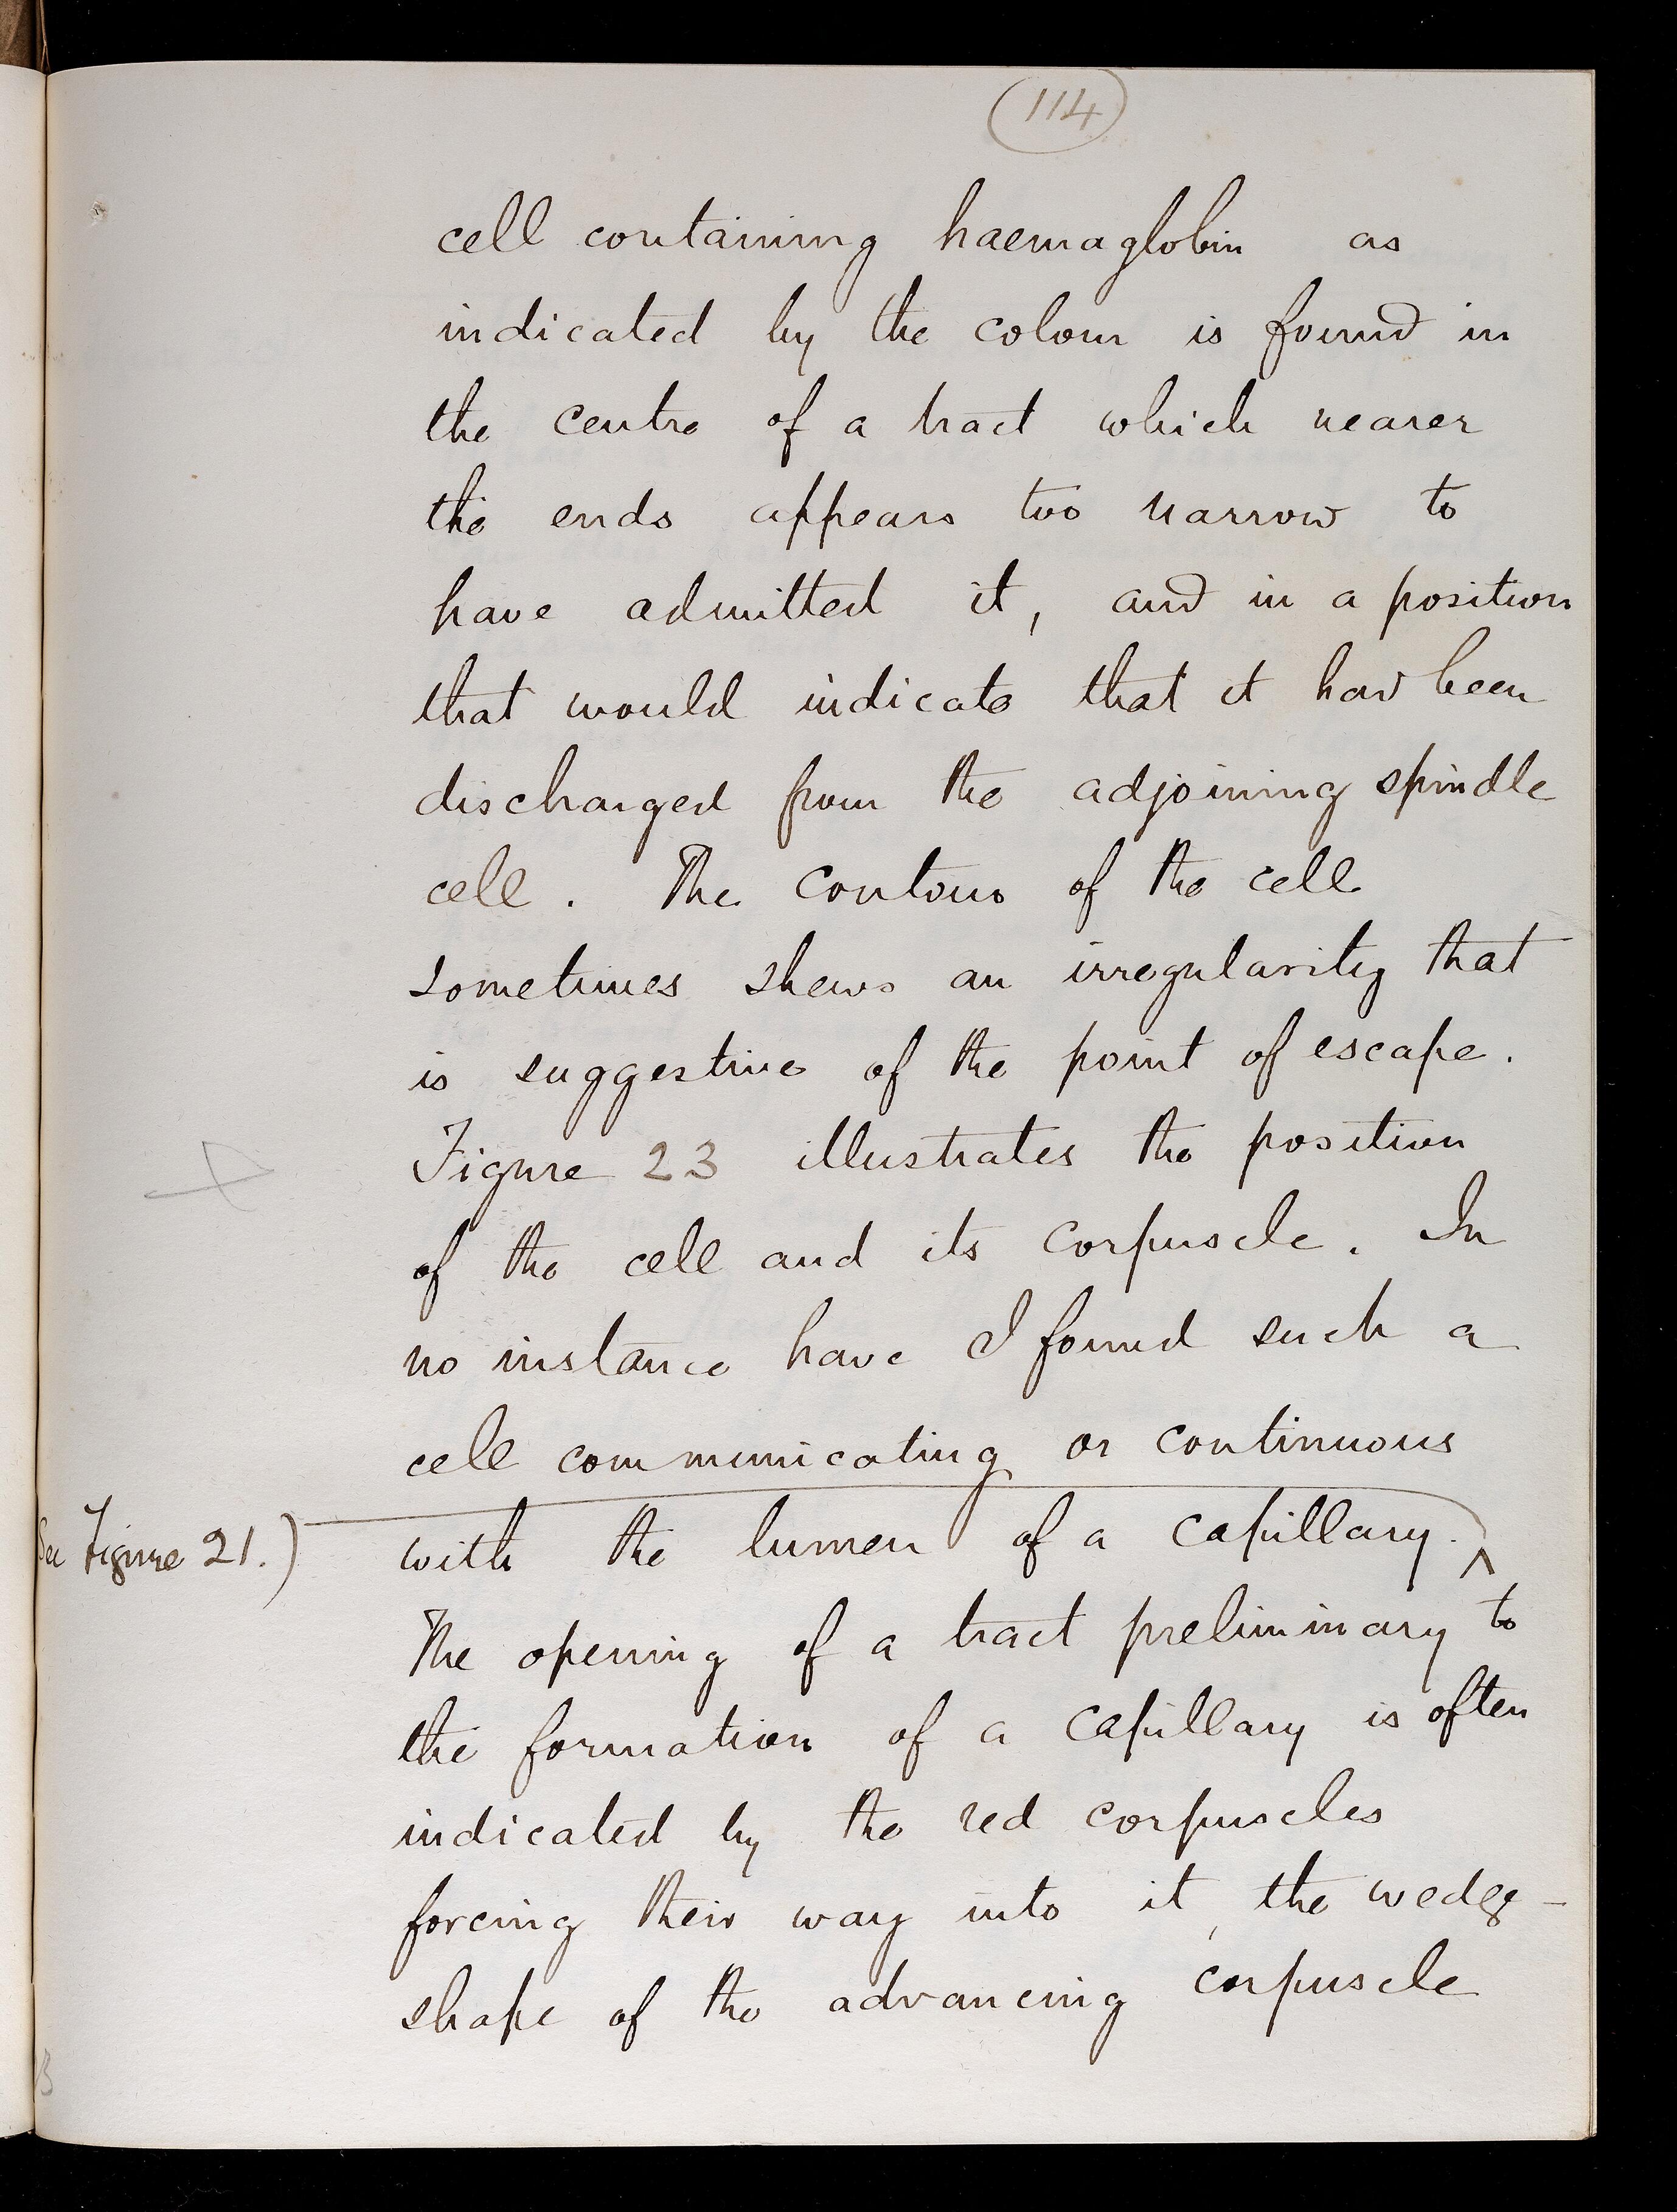 114
cell containing haemaglobin as
indicated by the colour is found in
the centre of a tract which nearer
the ends appears too narrow to
have admitted it, and in a position
that would indicate that it had been
discharged from the adjoining spindle
cell. The contour of the cell
sometimes shews an irregularity that
is suggestive of the point of escape.
Figure 23 illustrates the position
of the cell and its corpuscle. In
no instance have I found such a
cell communicating or continuous
with the lumen of a capillary.
See Figure 21.)
The opening of a tract preliminary to
the formation of a capillary is often
indicated by the red corpuscles
forcing their way into it, the wedge-
shape of the advancing corpuscle